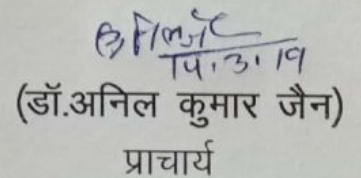 14.3.19
(डॉ.अनिल कुमार जैन)
प्राचार्य